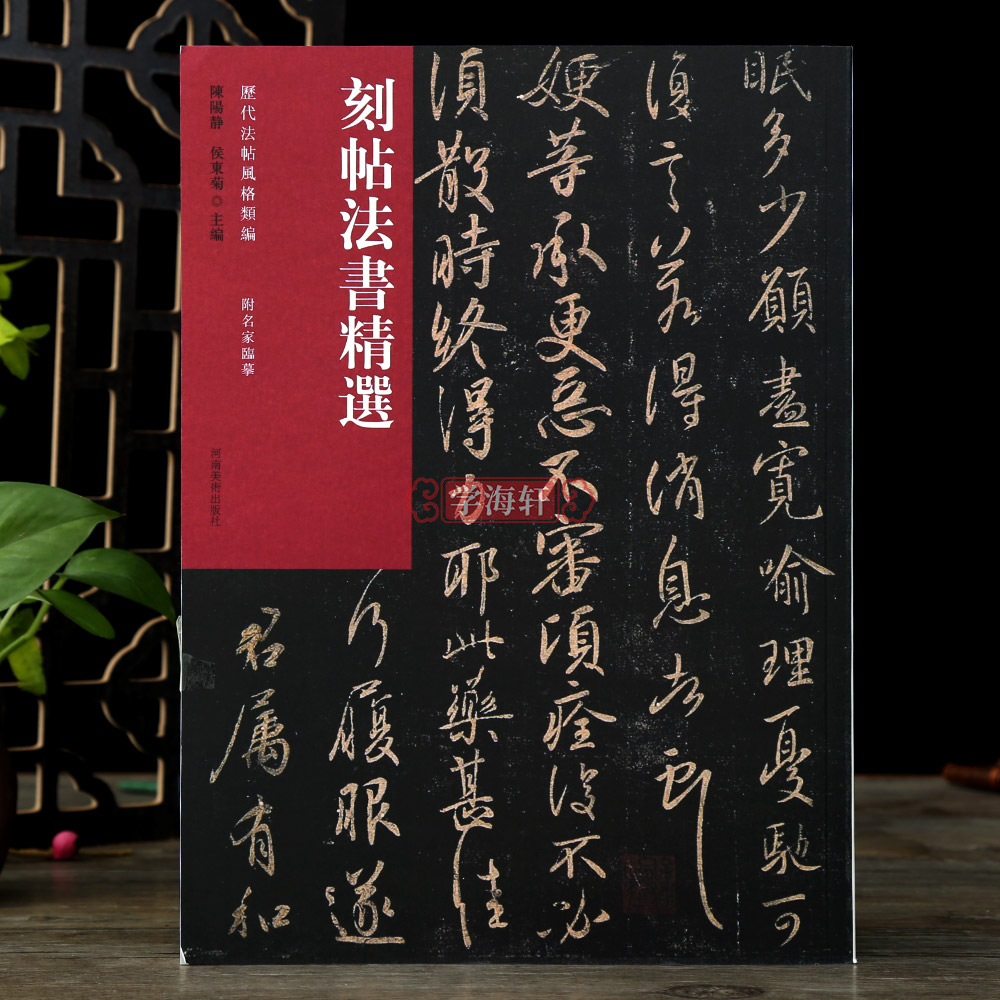 刻帖法書精選
歷代法帖風格類編 附名家臨摹
陳陽静 侯東菊◎主編
河南美術出版社
学海轩
眠多少願盡寬喻理憂馳可
須言若得消息告
㛐等承更惡不審須痊復不必
須散時終得力耶此藥甚佳
乃履眼遂
君属有和